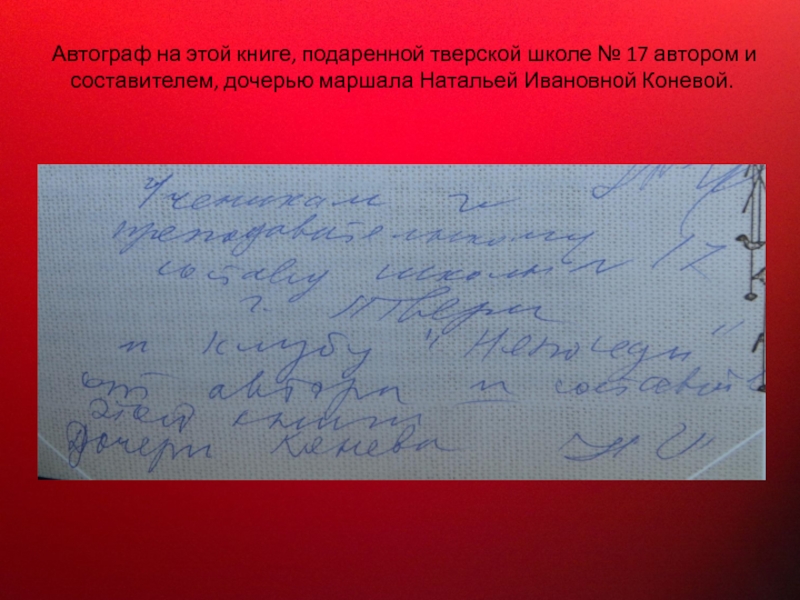 Автограф на этой книге, подаренной тверской школе № 17 автором и
составителем, дочерью маршала Натальей Ивановной Коневой.
Ученикам и
преподавательскому
составу школы 17
г. Твери
и клубу "Непоседы"
от автора и состави
этой книги
Дочери Конева Н И